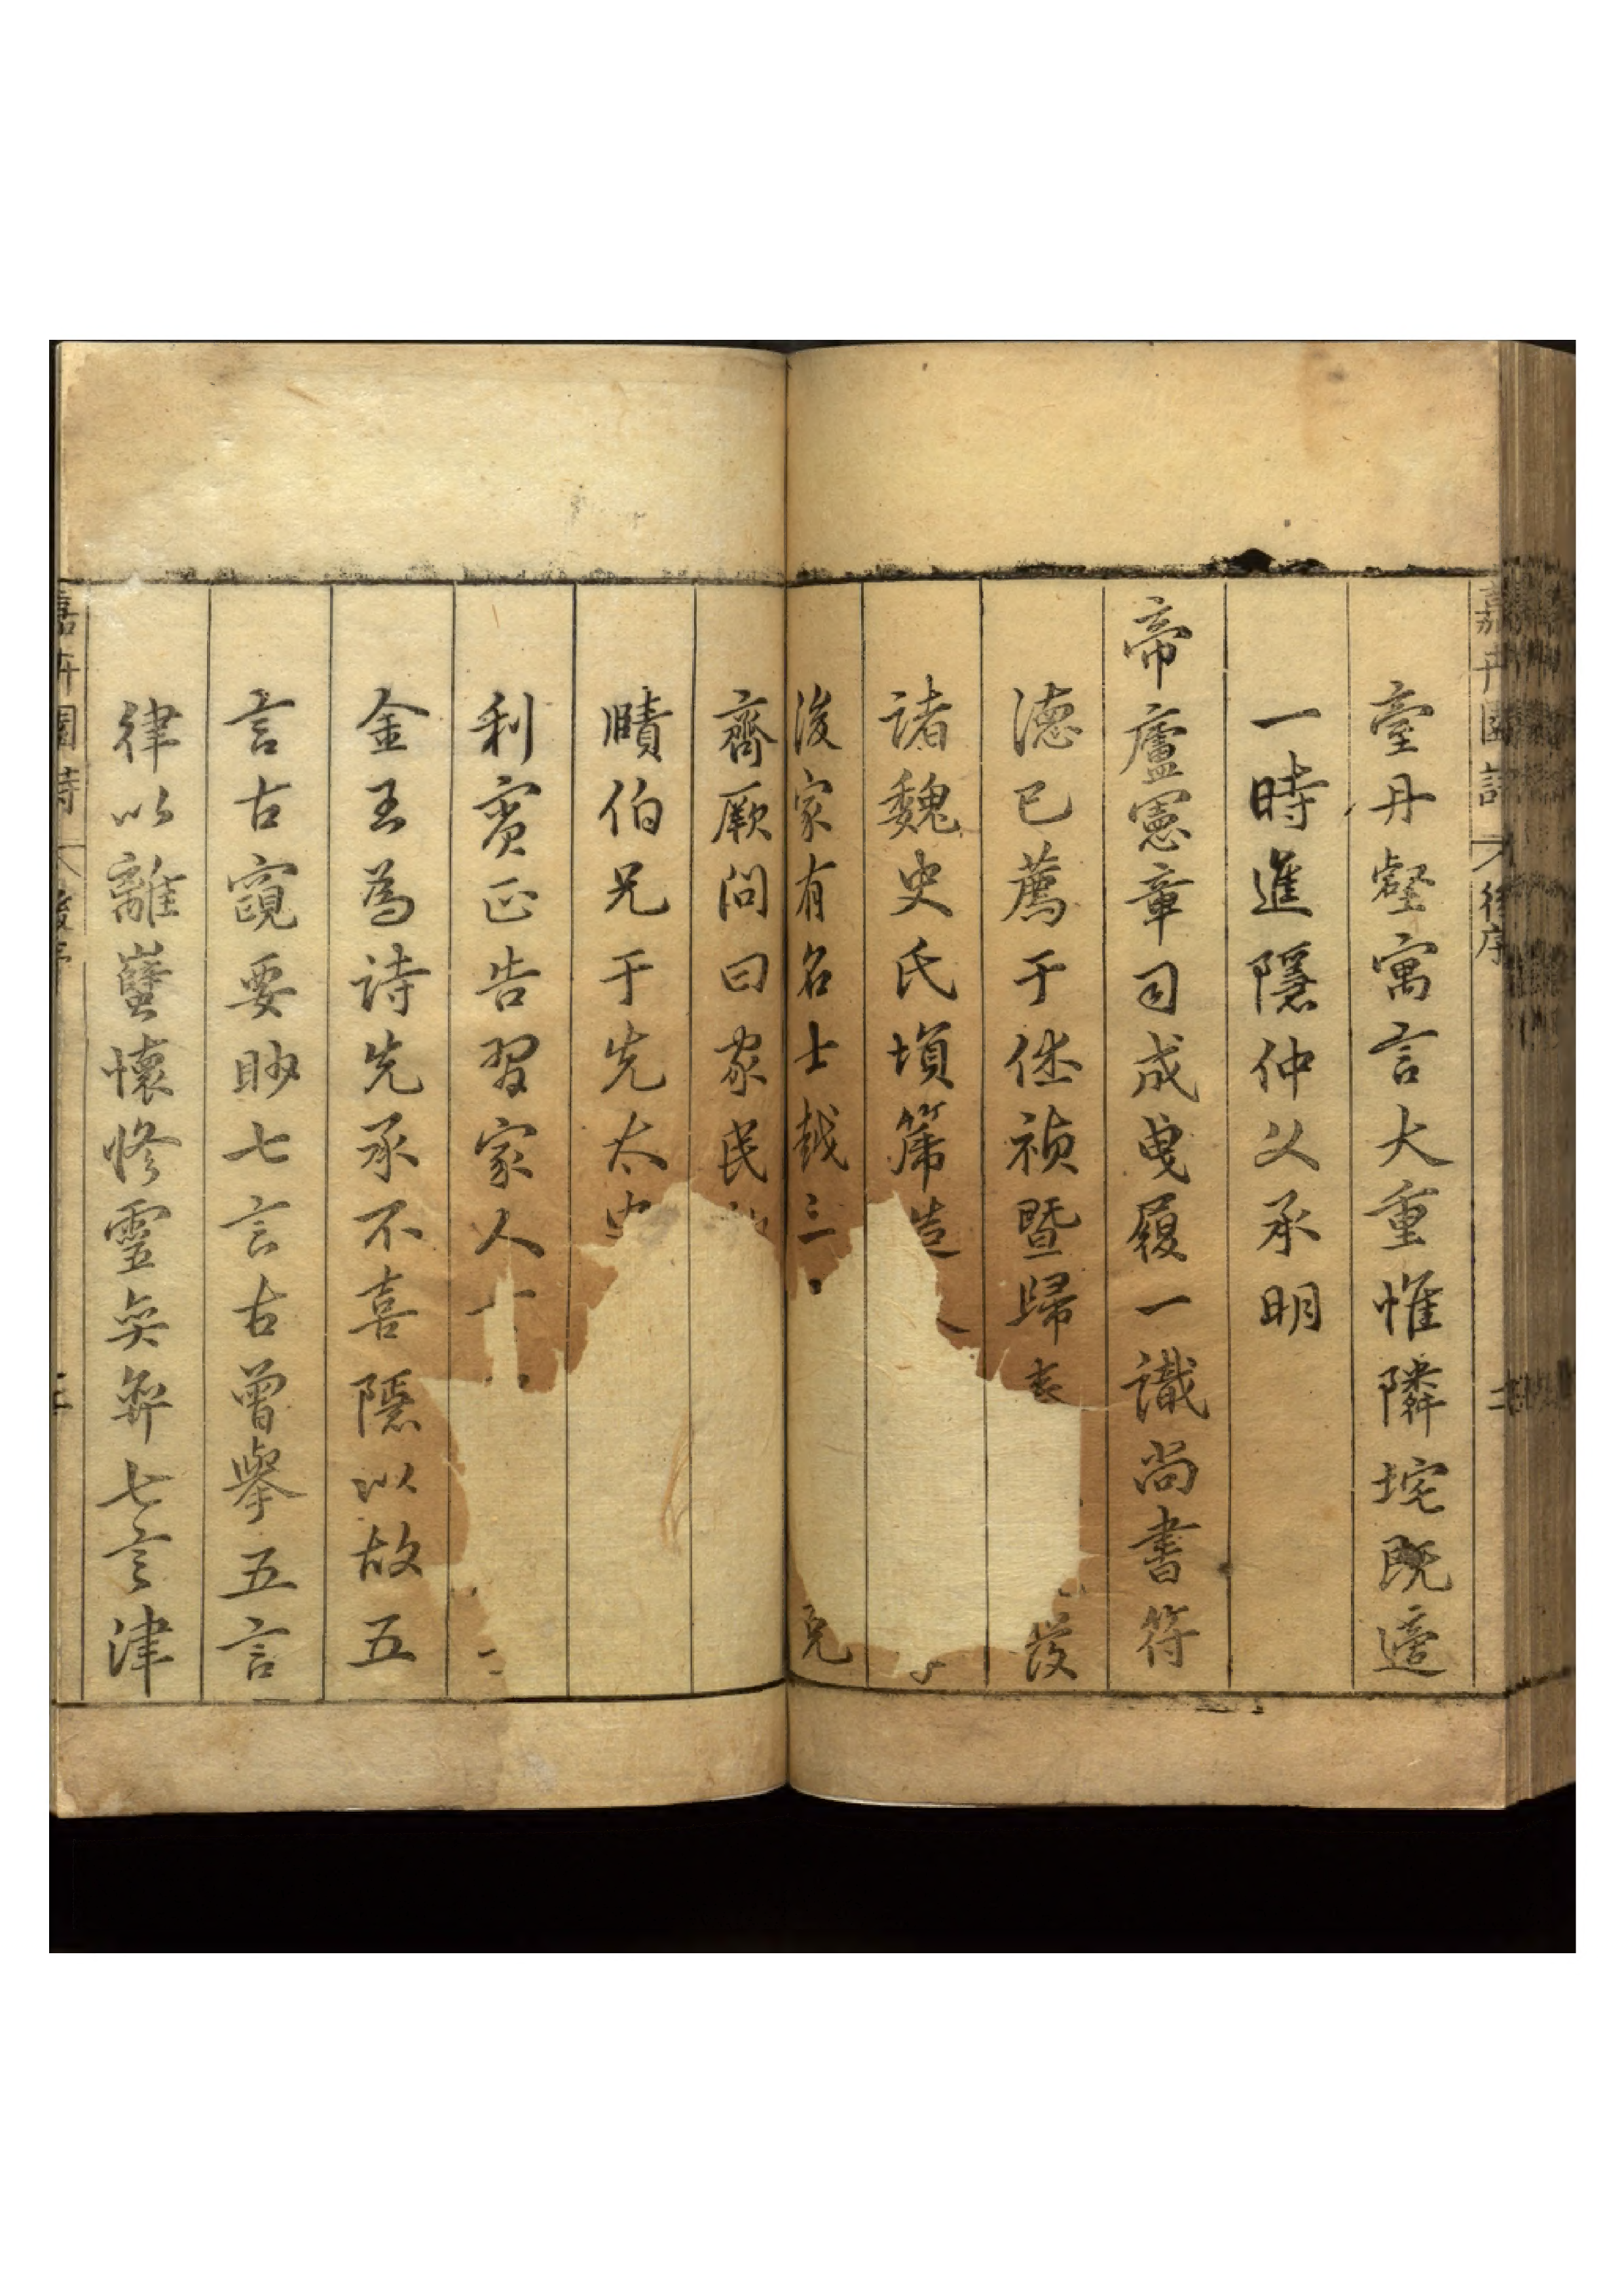 臺丹壑寓言大重惟隣垞既適
一時進隱仲父承明
帝廬憲章司成曳履一識尚書符
德已薦于侄禎暨歸 發
諸魏史氏塤篪造
後家有名士越三 克
齊厥問曰家民
賾伯兄于先太史
利賓正告習家人
金玉為詩先承不喜隱以故五
言古窺要眇七言古曾舉五言
律以離懷修靈奕弈七言津
嘉卉園詩 後序